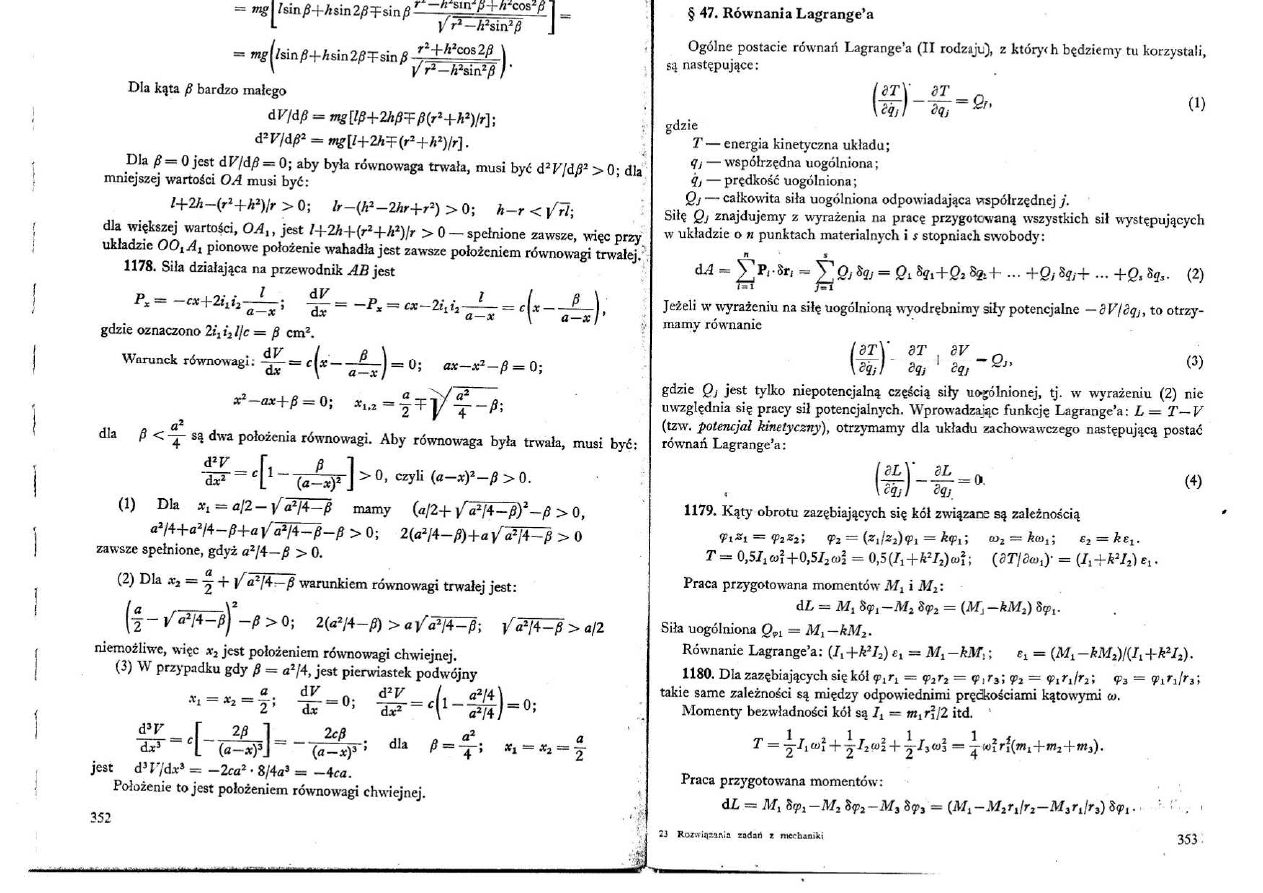 = mg [l sin β+h sin 2β∓sin β (r²−h²sin²β+h²cos²β)/√(r²−h²sin²β)] =
= mg (l sin β+h sin 2β∓sin β (r²+h²cos 2β)/√(r²−h²sin²β)).
Dla kąta β bardzo małego
dV/dβ = mg[lβ+2hβ∓β(r²+h²)/r];
d²V/dβ² = mg[l+2h∓(r²+h²)/r].
Dla β = 0 jest dV/dβ = 0; aby była równowaga trwała, musi być d²V/dβ² > 0; dla
mniejszej wartości OA musi być:
l+2h−(r²+h²)/r > 0; lr−(h²−2hr+r²) > 0; h−r < √rl;
dla większej wartości, OA₁, jest l+2h+(r²+h²)/r > 0 — spełnione zawsze, więc przy
układzie OO₁A₁ pionowe położenie wahadła jest zawsze położeniem równowagi trwałej.
1178. Siła działająca na przewodnik AB jest
Pₓ = −cx+2i₁i₂ l/(a−x); dV/dx = −Pₓ = cx−2i₁i₂ l/(a−x) = c(x− β/(a−x)),
gdzie oznaczono 2i₁i₂l/c = β cm².
Warunek równowagi: dV/dx = c(x− β/(a−x)) = 0; ax−x²−β = 0;
x²−ax+β = 0; x₁,₂ = a/2 ∓ √(a²/4 −β);
dla β < a²/4 są dwa położenia równowagi. Aby równowaga była trwała, musi być:
d²V/dx² = c[1− β/(a−x)²] > 0, czyli (a−x)²−β > 0.
(1) Dla x₁ = a/2−√(a²/4−β) mamy (a/2+√(a²/4−β))²−β > 0,
a²/4+a²/4−β+a√(a²/4−β)−β > 0; 2(a²/4−β)+a√(a²/4−β) > 0
zawsze spełnione, gdyż a²/4−β > 0.
(2) Dla x₂ = a/2 + √(a²/4−β) warunkiem równowagi trwałej jest:
(a/2 − √(a²/4−β))² −β > 0; 2(a²/4−β) > a√(a²/4−β); √(a²/4−β) > a/2
niemożliwe, więc x₂ jest położeniem równowagi chwiejnej.
(3) W przypadku gdy β = a²/4, jest pierwiastek podwójny
x₁ = x₂ = a/2; dV/dx = 0; d²V/dx² = c(1− (a²/4)/(a²/4)) = 0;
d³V/dx³ = c[− 2β/(a−x)³] = − 2cβ/(a−x)³; dla β = a²/4; x₁ = x₂ = a/2
jest d³V/dx³ = −2ca² · 8/4a³ = −4ca.
Położenie to jest położeniem równowagi chwiejnej.
352
§ 47. Równania Lagrange'a
Ogólne postacie równań Lagrange'a (II rodzaju), z których będziemy tu korzystali,
są następujące:
(∂T/∂q̇ⱼ)˙ − ∂T/∂qⱼ = Qⱼ, (1)
gdzie
T — energia kinetyczna układu;
qⱼ — współrzędna uogólniona;
q̇ⱼ — prędkość uogólniona;
Qⱼ — całkowita siła uogólniona odpowiadająca współrzędnej j.
Siłę Qⱼ znajdujemy z wyrażenia na pracę przygotowaną wszystkich sił występujących
w układzie o n punktach materialnych i s stopniach swobody:
dA = ∑ⁿᵢ₌₁ Pᵢ·δrᵢ = ∑ˢⱼ₌₁ Qⱼ δqⱼ = Q₁ δq₁+Q₂ δq₂+ ... +Qⱼ δqⱼ+ ... +Qₛ δqₛ. (2)
Jeżeli w wyrażeniu na siłę uogólnioną wyodrębnimy siły potencjalne −∂V/∂qⱼ, to otrzy-
mamy równanie
(∂T/∂q̇ⱼ)˙ − ∂T/∂qⱼ + ∂V/∂qⱼ = Qⱼ, (3)
gdzie Qⱼ jest tylko niepotencjalną częścią siły uogólnionej, tj. w wyrażeniu (2) nie
uwzględnia się pracy sił potencjalnych. Wprowadzając funkcję Lagrange'a: L = T−V
(tzw. potencjał kinetyczny), otrzymamy dla układu zachowawczego następującą postać
równań Lagrange'a:
(∂L/∂q̇ⱼ)˙ − ∂L/∂qⱼ = 0. (4)
1179. Kąty obrotu zazębiających się kół związane są zależnością
φ₁z₁ = φ₂z₂; φ₂ = (z₁/z₂)φ₁ = kφ₁; ω₂ = kω₁; ε₂ = kε₁.
T = 0,5I₁ω₁²+0,5I₂ω₂² = 0,5(I₁+k²I₂)ω₁²; (∂T/∂ω₁)˙ = (I₁+k²I₂)ε₁.
Praca przygotowana momentów M₁ i M₂:
dL = M₁ δφ₁−M₂ δφ₂ = (M₁−kM₂) δφ₁.
Siła uogólniona Qφ₁ = M₁−kM₂.
Równanie Lagrange'a: (I₁+k²I₂) ε₁ = M₁−kM₁; ε₁ = (M₁−kM₂)/(I₁+k²I₂).
1180. Dla zazębiających się kół φ₁r₁ = φ₂r₂ = φ₃r₃; φ₂ = φ₁r₁/r₂; φ₃ = φ₁r₁/r₃;
takie same zależności są między odpowiednimi prędkościami kątowymi ω.
Momenty bezwładności kół są I₁ = m₁r₁²/2 itd.
T = 1/2 I₁ω₁² + 1/2 I₂ω₂² + 1/2 I₃ω₃² = 1/4 ω₁²r₁²(m₁+m₂+m₃).
Praca przygotowana momentów:
dL = M₁ δφ₁−M₂ δφ₂−M₃ δφ₃ = (M₁−M₂r₁/r₂−M₃r₁/r₃) δφ₁.
23 Rozwiązania zadań z mechaniki
353